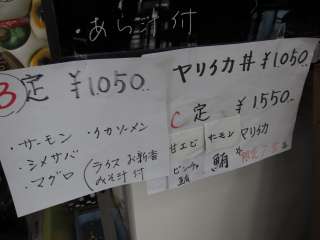 ・あら汁付
B 定 ¥1050.
・サーモン ・イカソーメン
・シメサバ
・マグロ
(ライス お新香
みそ汁 付)
ヤリイカ丼 ¥1050.
C 定 ¥1550.
甘エビ サーモン ヤリイカ
ビンチョウ鮪 鮪